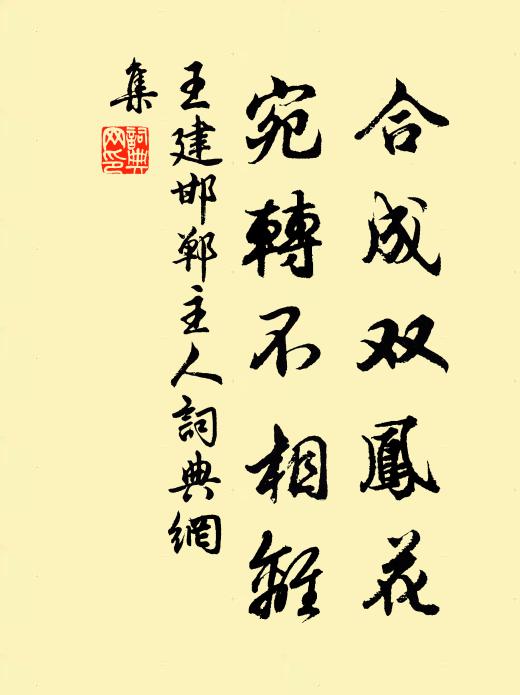 合成双鳳花
宛轉不相離
王建邯鄲主人詞典網
集
詞典網印